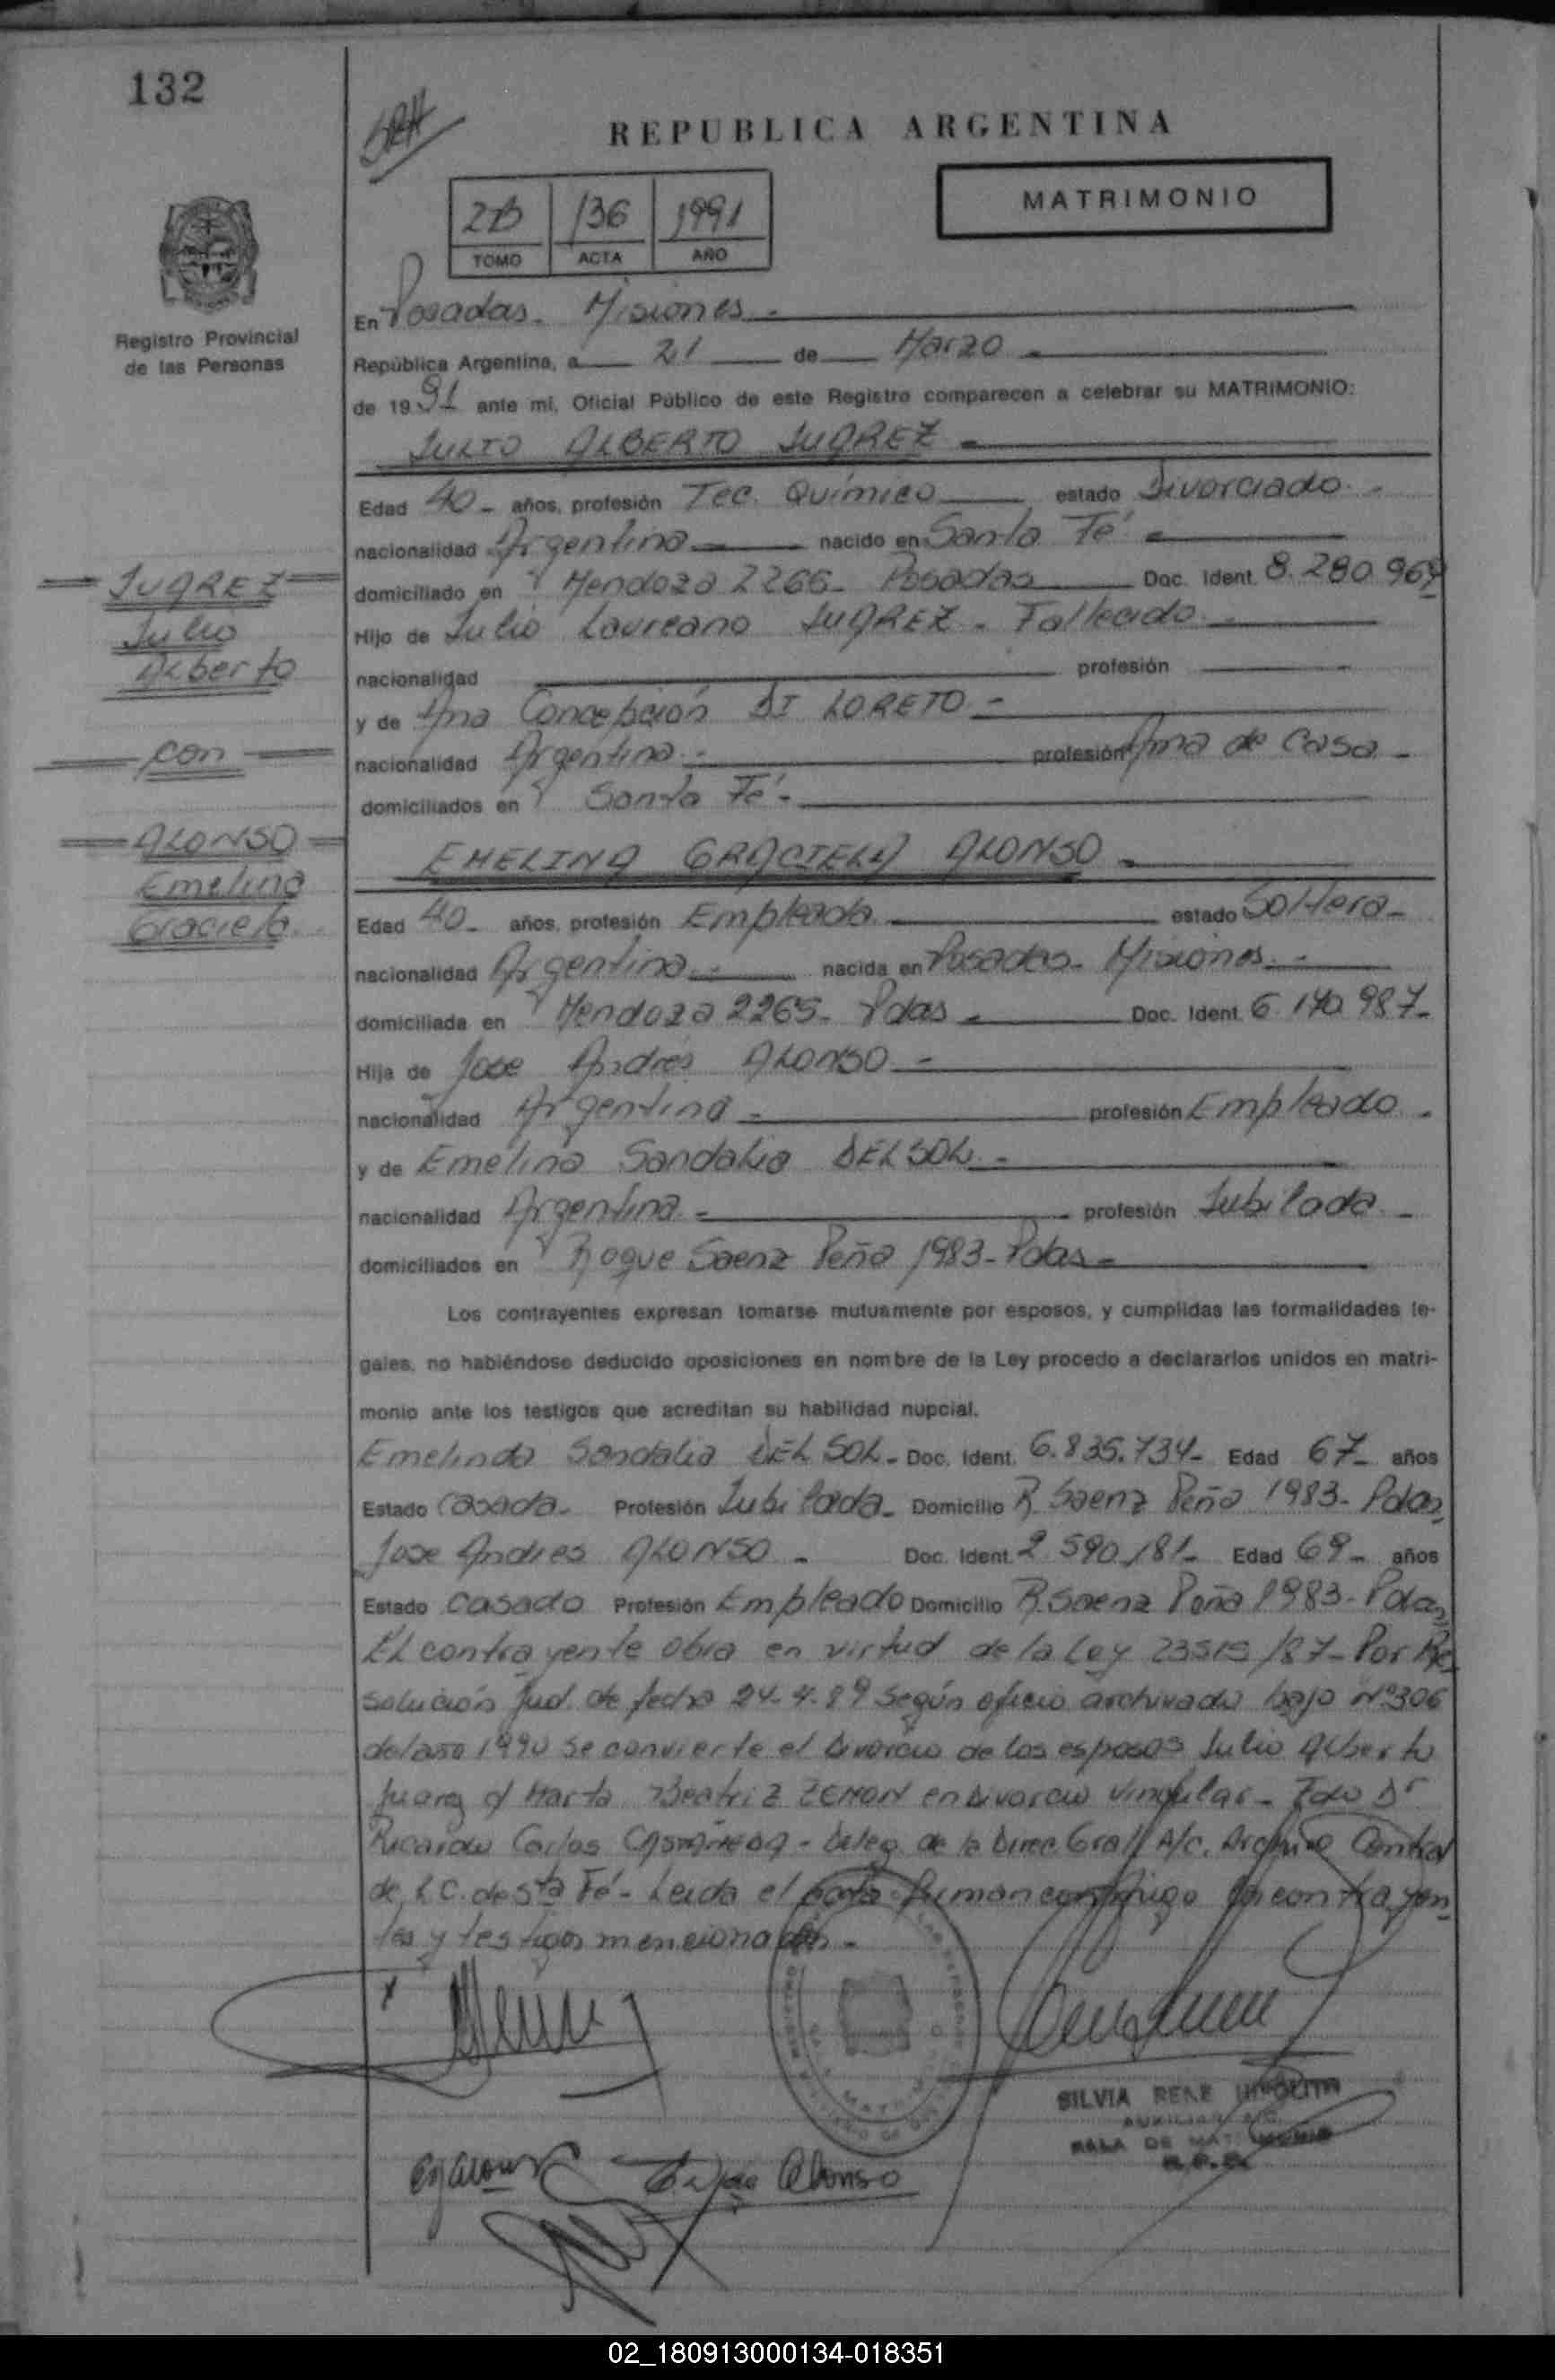 132
REPUBLICA ARGENTINA
MATRIMONIO
2B 136 1991
TOMO ACTA AÑO
Registro Provincial
de las Personas
En Posadas - Misiones -
República Argentina, a 21 de Marzo -
de 1991 ante mi, Oficial Público de este Registro comparecen a celebrar su MATRIMONIO:
JULIO ALBERTO JUAREZ -
Edad 40 - años, profesión Tec. Químico estado Divorciado -
nacionalidad Argentina nacido en Santa Fé -
JUAREZ
Julio
Alberto
con
ALONSO
Emelina
Graciela
domiciliado en Mendoza 2266 - Posadas Doc. Ident. 8.280.969
Hijo de Julio Laureano JUAREZ - Fallecido -
nacionalidad profesión
y de Ana Concepción DI LORETO -
nacionalidad Argentina - profesión Ama de Casa -
domiciliados en Santa Fé -
EMELINA GRACIELA ALONSO -
Edad 40 - años, profesión Empleada estado Soltera -
nacionalidad Argentina - nacida en Posadas - Misiones -
domiciliada en Mendoza 2265 - Pdas - Doc. Ident. 6.140.987 -
Hija de Jose Andres ALONSO -
nacionalidad Argentina - profesión Empleado -
y de Emelina Sandalia DEL SOL -
nacionalidad Argentina - profesión Jubilada -
domiciliados en Roque Saenz Peña 1983 - Pdas -
Los contrayentes expresan tomarse mutuamente por esposos, y cumplidas las formalidades le-
gales, no habiéndose deducido oposiciones en nombre de la Ley procedo a declararlos unidos en matri-
monio ante los testigos que acreditan su habilidad nupcial.
Emelinda Sandalia DEL SOL - Doc. Ident. 6.835.734 - Edad 67 - años
Estado Casada - Profesión Jubilada - Domicilio R. Saenz Peña 1983 - Pdas
Jose Andres ALONSO - Doc. Ident. 2.590.181 - Edad 69 - años
Estado Casado Profesión Empleado Domicilio R. Saenz Peña 1983 - Pdas
El contrayente obra en virtud de la Ley 23515/87 - Por Re
solución Jud. de fecha 24-4-89 según oficio archivado bajo Nº 306
del año 1990 se convierte el divorcio de los esposos Julio Alberto
Juarez c/ Marta Beatriz ZEMON en Divorcio Vincular - Fdo Dr
Ricardo Carlos CASTAÑEDA - Deleg. de la Direc. Gral A/c. Archivo Central
de R.C. de Sta Fé - Leida el acta firman conmigo los contrayen
tes y testigos mencionados -
SILVIA RENE HIPOLITO
AUXILIAR A/C
SALA DE MATRIMONIO
R.P.P.
Alonso
02_180913000134-018351